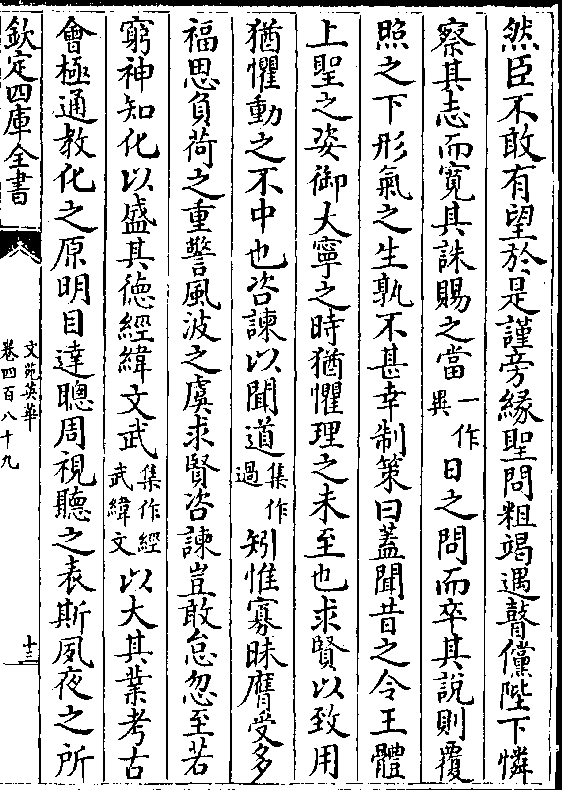 然臣不敢有望於是謹旁緣聖問粗竭遇瞽儻陛下憐
察其志而寛其誅賜之當一作異日之問而卒其說則覆
照之下形氣之生孰不甚幸制策曰蓋聞昔之令王體
上聖之姿御大寧之時猶懼理之未至也求賢以致用
猶懼動之不中也咨諫以聞道集作過矧惟寡昧膺受多
福思負荷之重警風波之虞求賢咨諫豈敢怠忽至若
窮神知化以盛其徳經緯文武集作經武緯文以大其業考古
會極通教化之原明目達聰周視聽之表斯夙夜之所
欽定四庫全書
文苑英華
卷四百八十九
十三